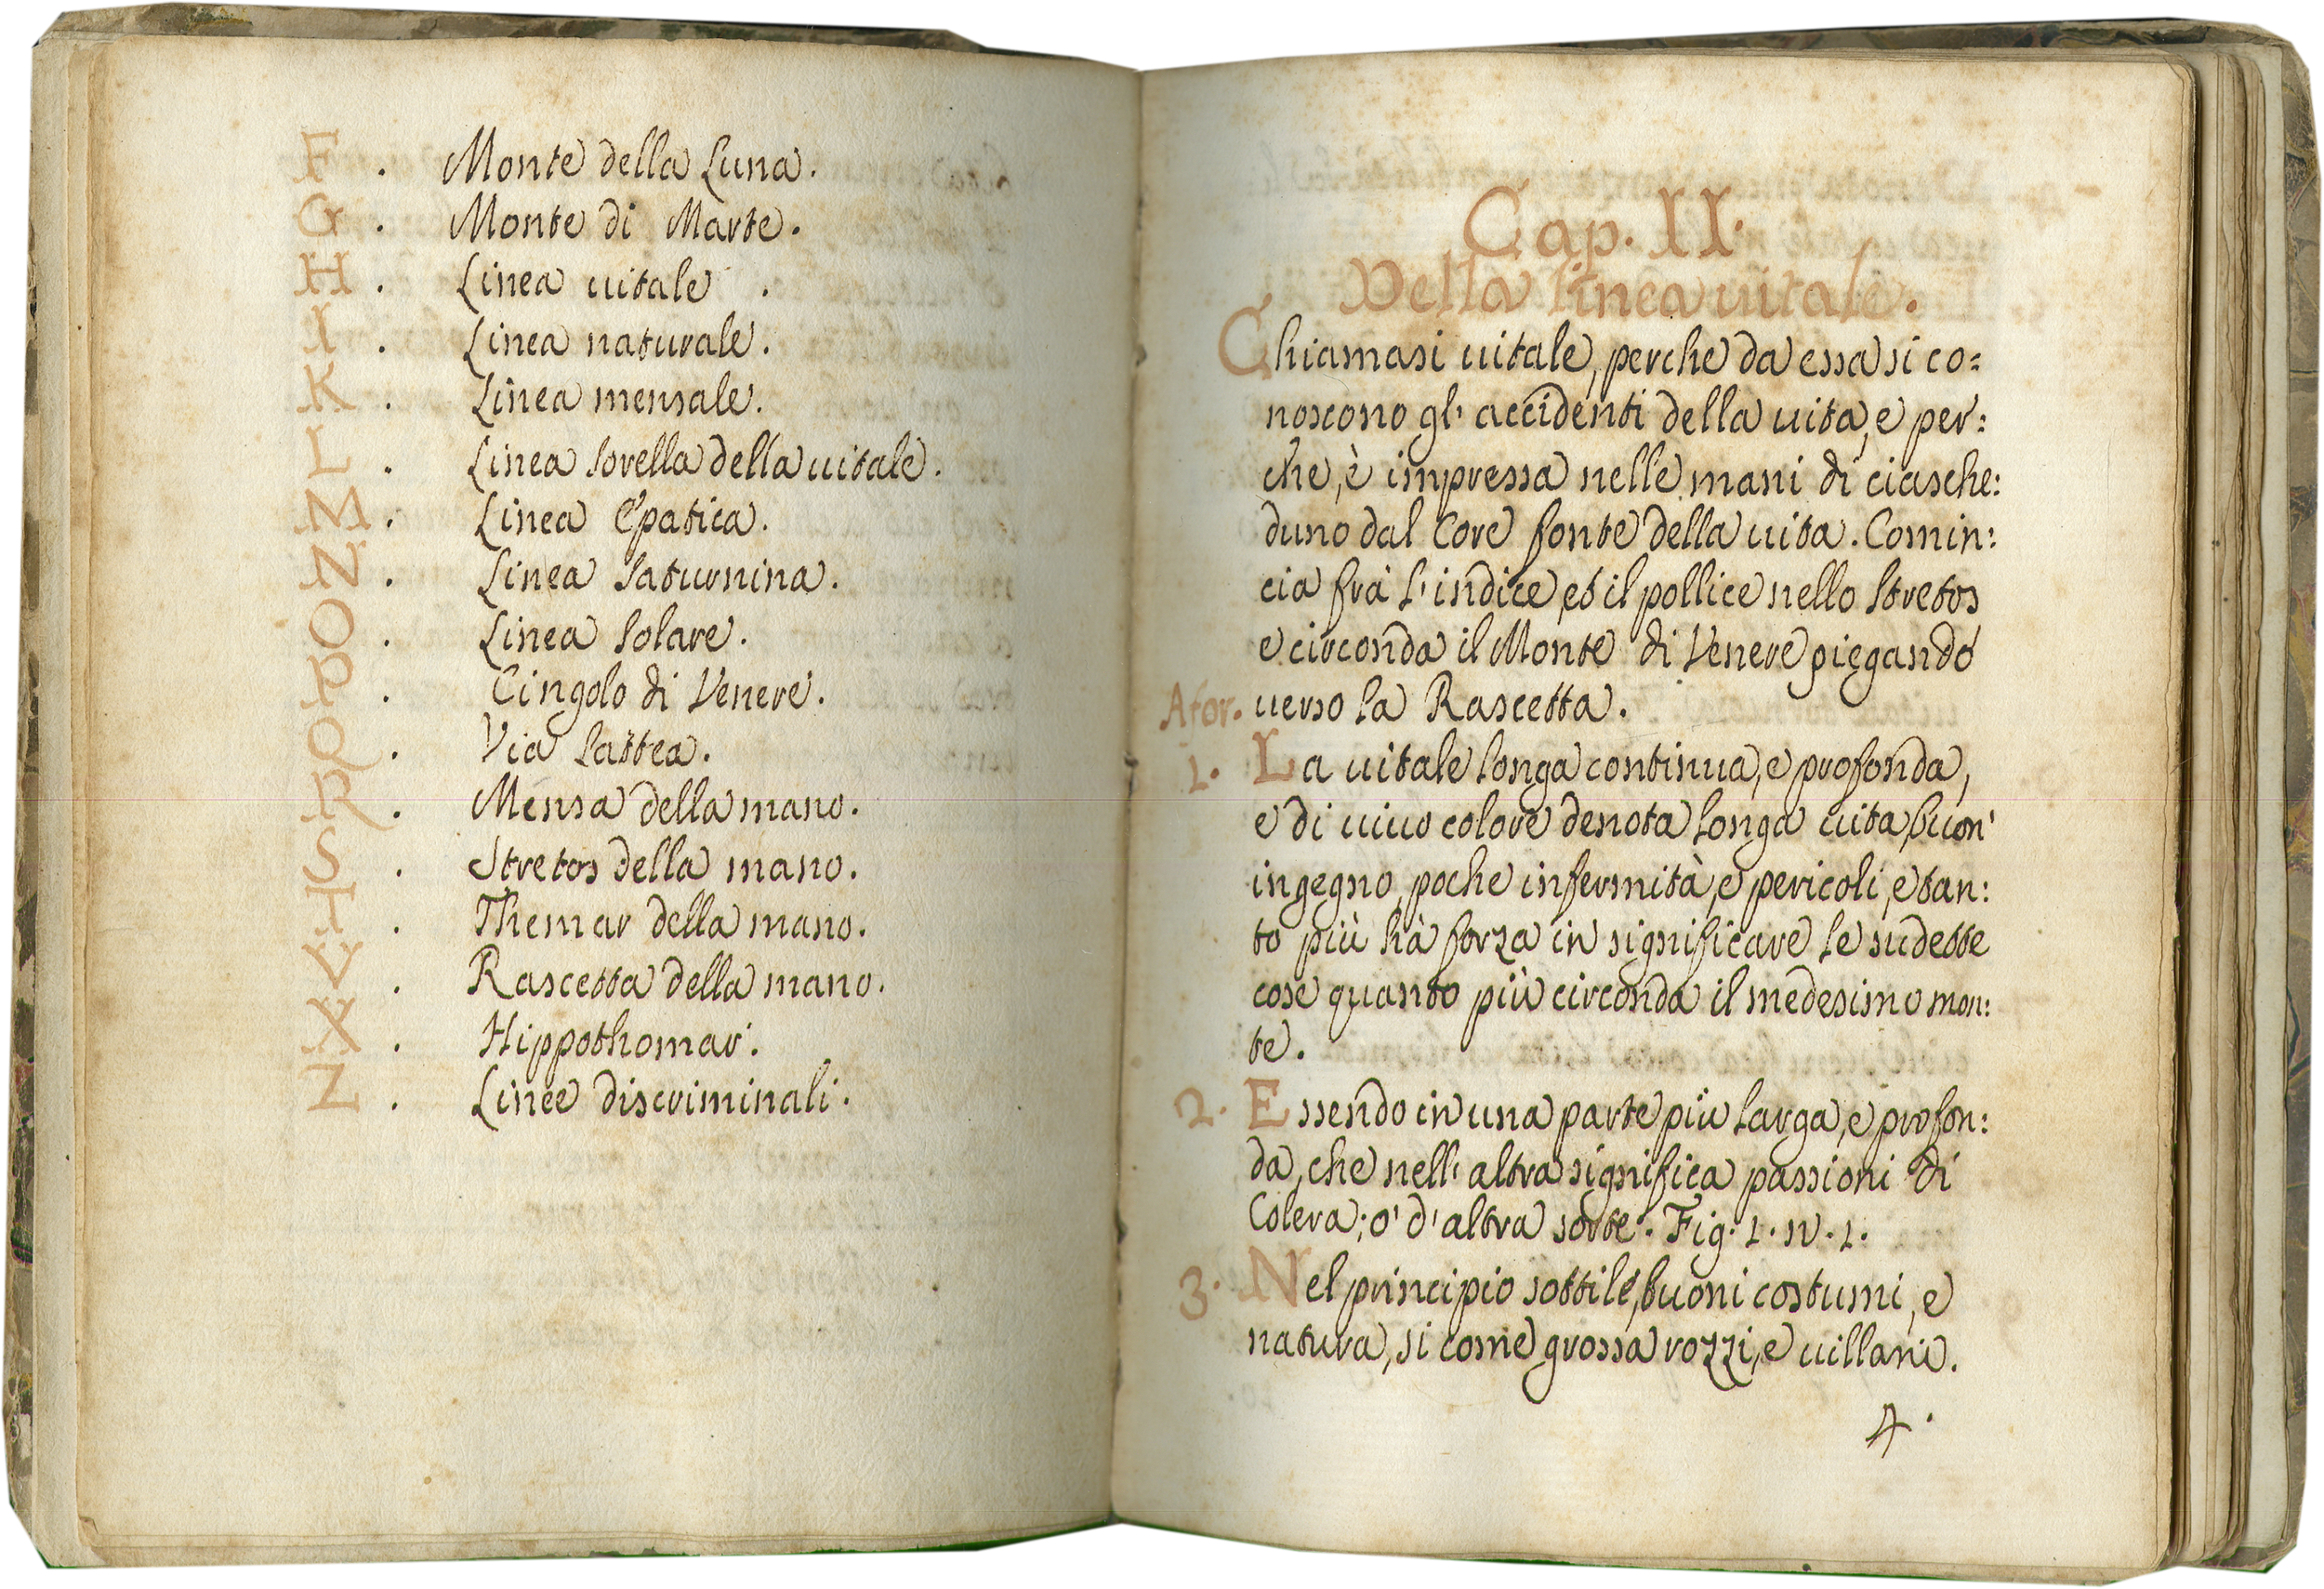 F . Monte della Luna.
G . Monte di Marte.
H . Linea uitale .
I . Linea naturale.
K . Linea mensale.
L . Linea sorella della uitale.
M . Linea Epatica.
N . Linea Saturnina.
O . Linea Solare.
P . Cingolo di Venere.
Q . Via Lattea.
R . Mensa della mano.
S . Stretos della mano.
T . Themar della mano.
V . Rascetta della mano.
X . Hippothomar.
Z . Linee discriminali.
Cap. II.
Della linea uitale.
Chiamasi uitale, perche da essa si co=
noscono gl' accidenti della uita, e per:
che, è impressa nelle mani di ciasche:
duno dal Core fonte della uita. Comin:
cia frà l'indice, et il pollice nello Stretos
e circonda il Monte di Venere piegando
Afor. uerso la Rascetta.
1. La uitale longa continua, e profonda,
e di uiuo colore denota longa uita, buon'
ingegno, poche infermità, e pericoli, e tan:
to più hà forza in significare le sudette
cose quanto più circonda il medesimo mon:
te.
2. Essendo in una parte più larga, e profon:
da, che nell' altra significa passioni di
Colera; o' d'altra sorte. Fig. 1. N. 1.
3. Nel principio sottile, buoni costumi, e
natura, si come grossa rozzi, e uillani.
4.